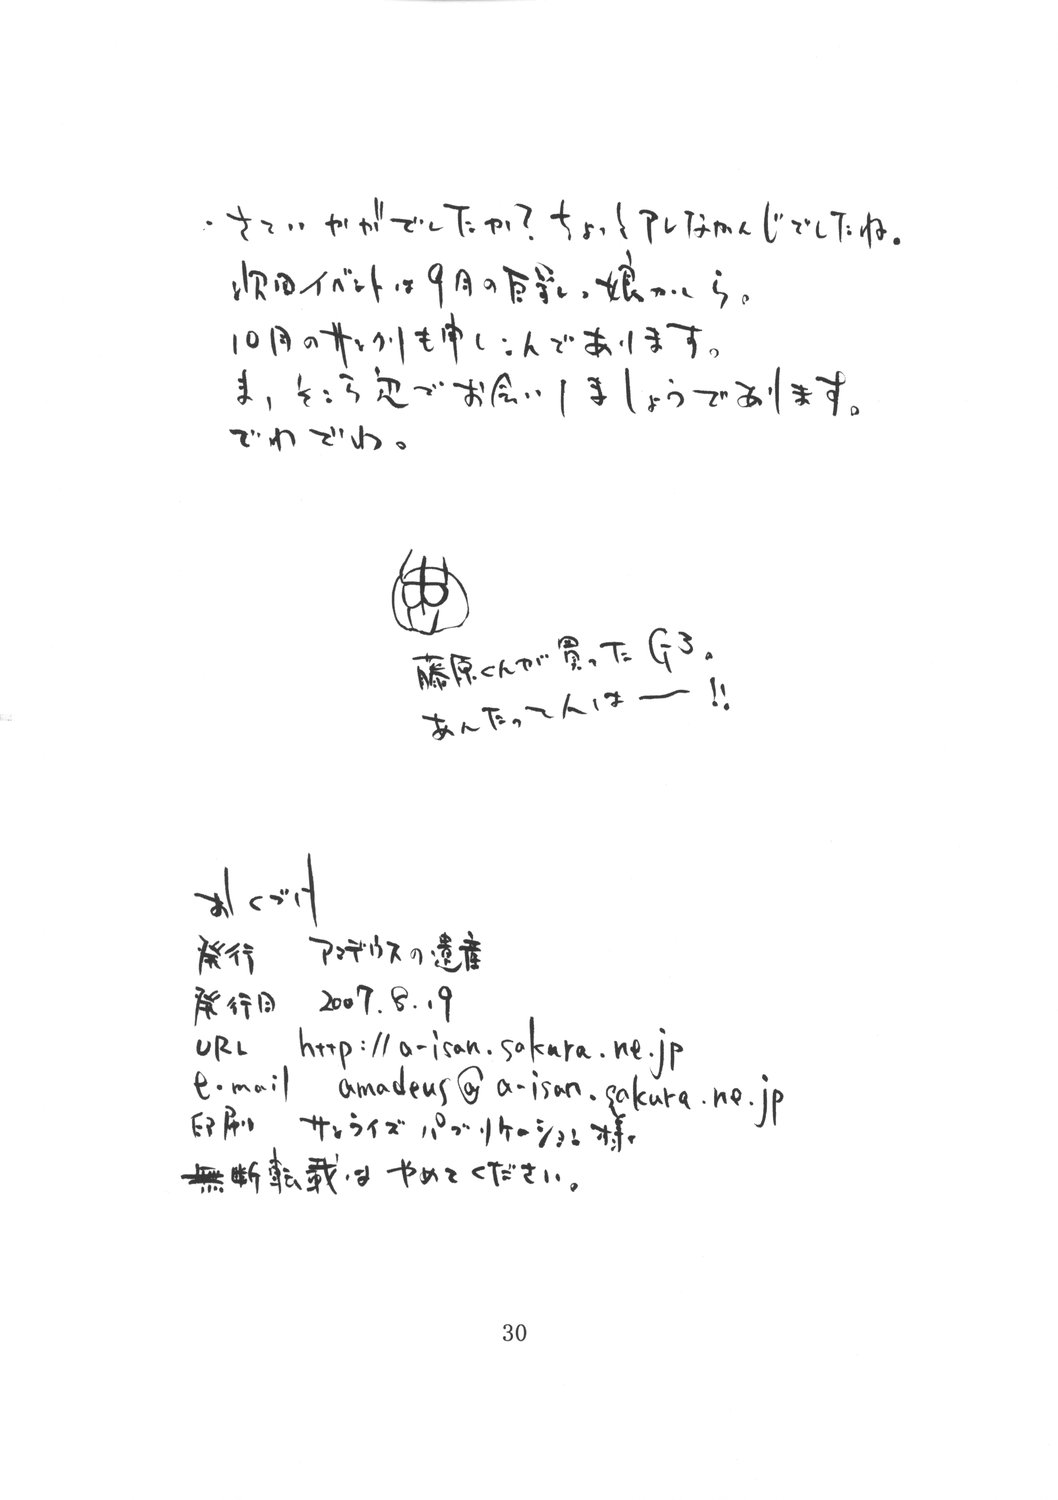 ・さていかがでしたか?ちょっとアレなかんじでしたね。
次回イベントは9月の巨乳っ娘かしら。
10月のサンクリも申しこんであります。
ま,そこら辺でお会いしましょうであります。
でわでわ。
藤原くんが買ったG3。
あんたって人はー!!
おくづけ
発行 アマデウスの遺産
発行日 2007.8.19
URL http://a-isan.sakura.ne.jp
e.mail amadeus@a-isan.sakura.ne.jp
印刷 サンライズパブリケーション様
無断転載はやめてください。
30